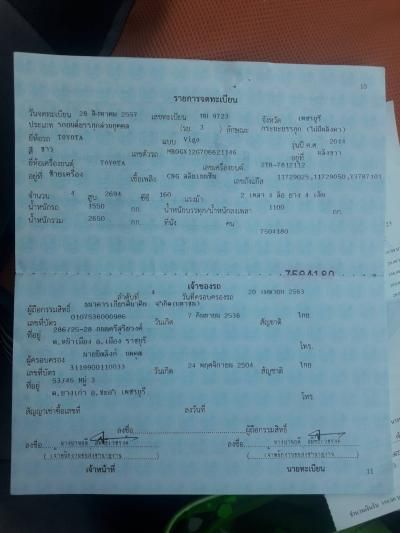 10
รายการจดทะเบียน
วันจดทะเบียน 28 สิงหาคม 2557 เลขทะเบียน 9723 จังหวัด เพชรบุรี
ประเภท รถยนต์บรรทุกส่วนบุคคล (รย. 3 ) ลักษณะ กระบะบรรทุก (ไม่มีหลังคา)
ยี่ห้อรถ TOYOTA แบบ Vigo รุ่นปี ค.ศ. 2014
สี ขาว เลขตัวรถ MR0GX12G706621146 อยู่ที่
ยี่ห้อเครื่องยนต์ TOYOTA เลขเครื่องยนต์ 2TR-7812112
อยู่ที่ ข้างเครื่อง เชื้อเพลิง CNG เลขถังแก๊ส 11729025,11729050,13787101
จำนวน 4 สูบ 2694 ซีซี 160 แรงม้า 2 เพลา 4 ล้อ ยาง 4 เส้น
น้ำหนักรถ 1550 กก. น้ำหนักบรรทุก/น้ำหนักลงเพลา 1100 กก.
น้ำหนักรวม 2650 กก. ที่นั่ง คน
7504180
7504180
เจ้าของรถ
ลำดับที่ 4 วันที่ครอบครองรถ 20 เมษายน 2563
ผู้ถือกรรมสิทธิ์ ธนาคารเกียรตินาคิน จำกัด(มหาชน)
เลขที่บัตร 0107536000986 วันเกิด 7 กันยายน 2536 สัญชาติ ไทย
ที่อยู่ 286/25-28 ถนนศรีสุริยวงศ์
ต.หน้าเมือง อ.เมือง ราชบุรี โทร.
ผู้ครอบครอง
เลขที่บัตร 3119900110033 วันเกิด 24 พฤศจิกายน 2504 สัญชาติ ไทย
ที่อยู่ 53/45 หมู่ 3
ต.บางเก่า อ.ชะอำ เพชรบุรี โทร
สัญญาเช่าซื้อเลขที่ ลงวันที่
ลงชื่อ ผู้ถือกรรมสิทธิ์
ลงชื่อ ลงชื่อ
เจ้าหน้าที่ นายทะเบียน
11